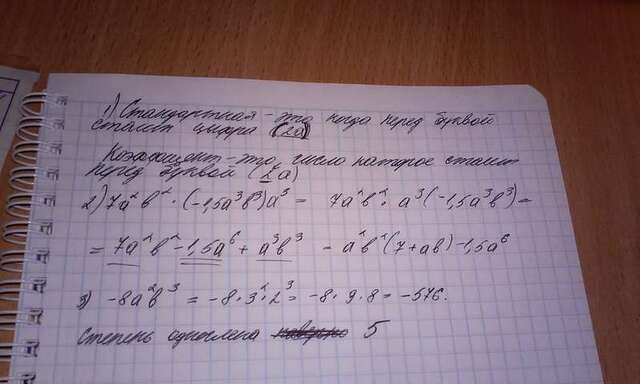 1) Стандартная - это когда перед буквой
стоит цифра (2a)
Коэффициент - это число которое стоит
перед буквой (2a)
2) 7a²b² · (-1,5a³b³)a³ = 7a²b² · a³(-1,5a³b³) =
= 7a²b² - 1,5a⁶ + a³b³ - a²b²(7+ab) - 1,5a⁶
3) -8a²b³ = -8·3²·2³ = -8·9·8 = -576.
Степень одночлена 5